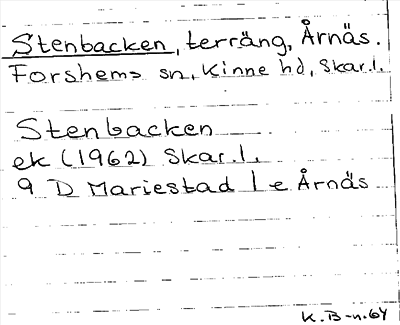 Stenbacken, terräng, Årnäs.
Forshems sn, Kinne hd, Skar.l.
Stenbacken
ek (1962) Skar.l.
9 D Mariestad l e Årnäs
K.B-n.64